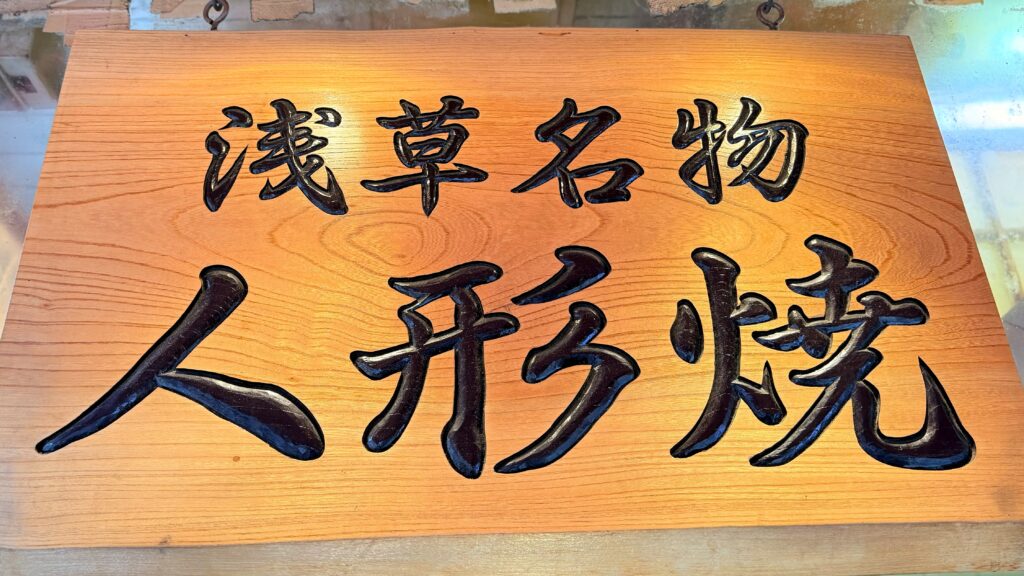 浅草名物
人形焼